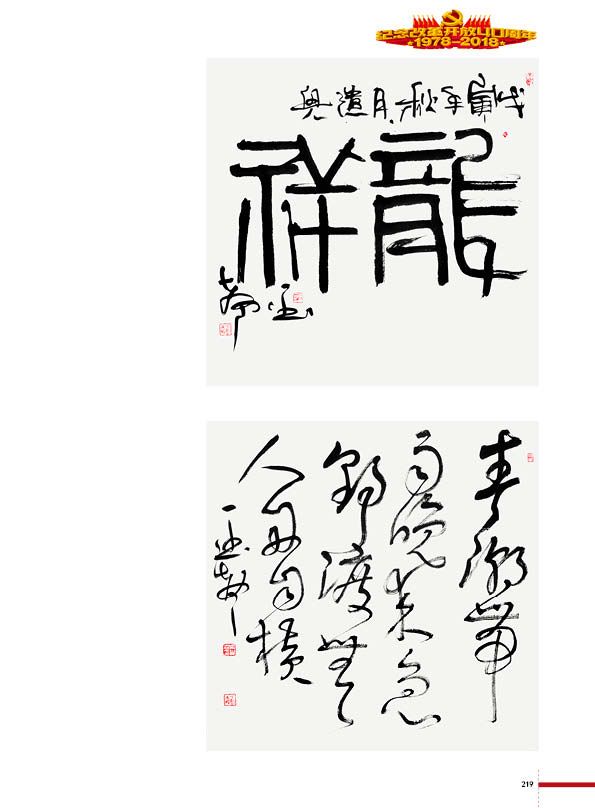 纪念改革开放40周年
1978-2018
戊寅年秋月遣興
龍祥
春潮帶
雨晚来急
野渡無
人舟自横
219